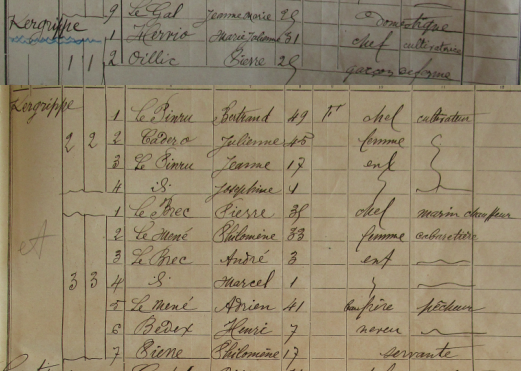 9 Le Gal Jeanne Marie 25 Domestique
Kergrippe 1 Herrio Marie 31 chef
1 1 2 Oillic Pierre 25 garçon de ferme
Kergrippe 1 Le Pinru Bertrand 49 chef cultivateur
2 2 2 Cadero Julienne 45 femme
3 Le Pinru Jeanne 17 enf
4 id Josephine 1
1 Le Brec Pierre 35 chef marin chauffeur
2 Le Mené Philomène 33 femme
3 Le Brec André 3 enf
3 3 4 id Marcel 1
5 Le Mené Adrien 41 frère pêcheur
6 Bedex Henri 7 neveu
7 Pierre Philomène 17 servante